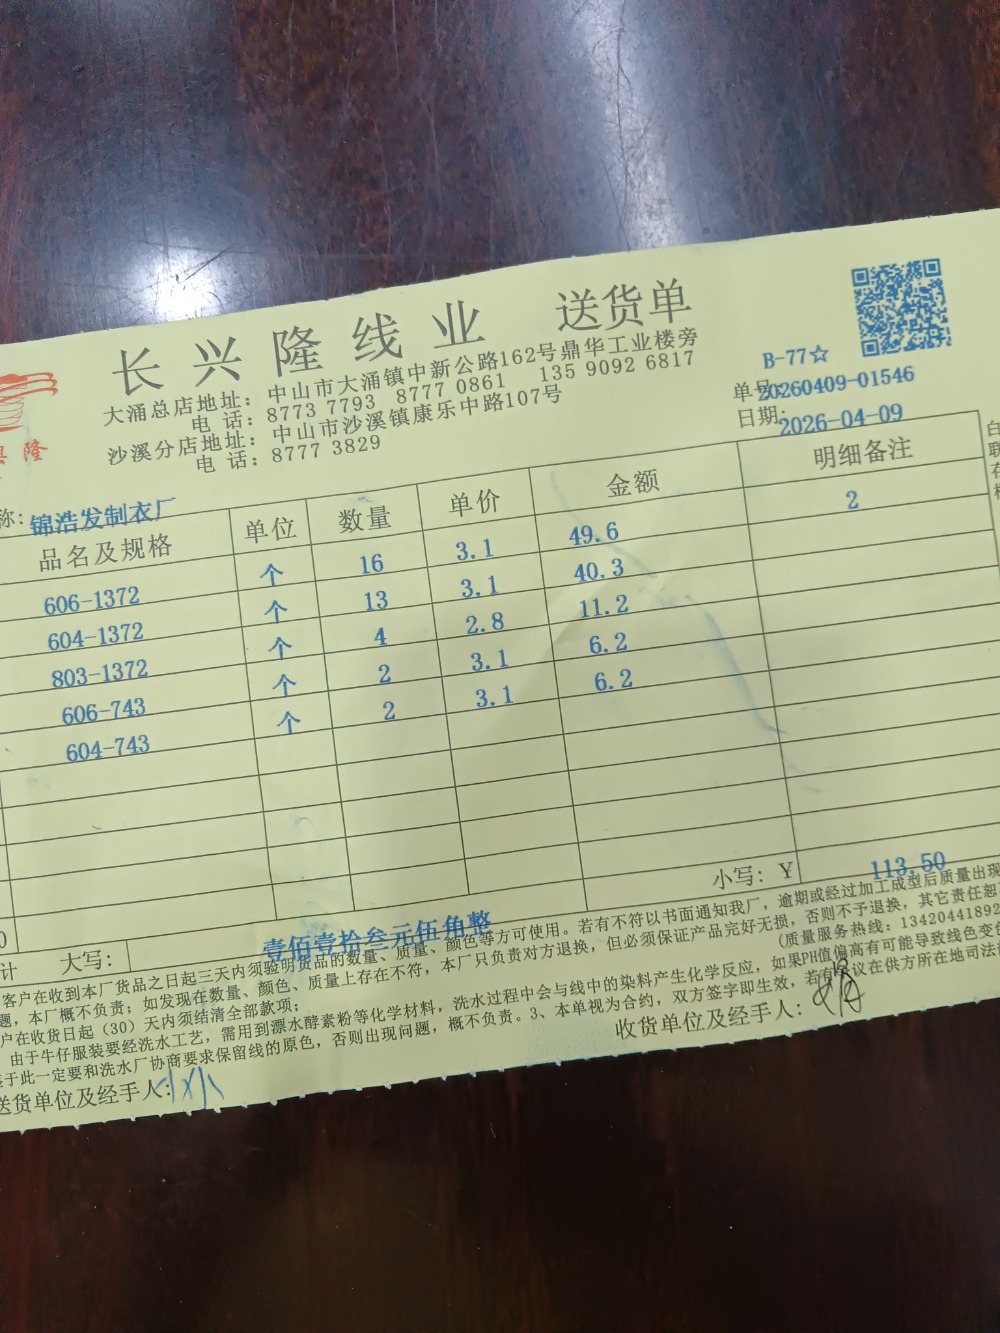 长兴隆线业 送货单
大涌总店地址：中山市大涌镇中新公路162号鼎华工业楼旁
电 话：8773 7793 8777 0861 135 9092 6817
沙溪分店地址：中山市沙溪镇康乐中路107号
电 话：8777 3829
B-77☆
单号:20260409-01546
日期:2026-04-09
隆
称：锦浩发制衣厂
品名及规格 单位 数量 单价 金额 明细备注
606-1372 个 16 3.1 49.6 2
604-1372 个 13 3.1 40.3
803-1372 个 4 2.8 11.2
606-743 个 2 3.1 6.2
604-743 个 2 3.1 6.2
小写：Y 113.50
计 大写：壹佰壹拾叁元伍角整
客户在收到本厂货品之日起三天内须验明货品的数量、质量、颜色等方可使用。若有不符以书面通知我厂，逾期或经过加工成型后质量出现
题，本厂概不负责；如发现在数量、颜色、质量上存在不符，本厂只负责对方退换，但必须保证产品完好无损，否则不予退换，其它责任恕
户在收货日起（30）天内须结清全部款项； (质量服务热线：13420441892
由于牛仔服装要经洗水工艺，需用到漂水酵素粉等化学材料，洗水过程中会与线中的染料产生化学反应，如果PH值偏高有可能导致线色变
于此一定要和洗水厂协商要求保留线的原色，否则出现问题，概不负责。3、本单视为合约，双方签字即生效，若有争议在供方所在地司法
送货单位及经手人：
收货单位及经手人：